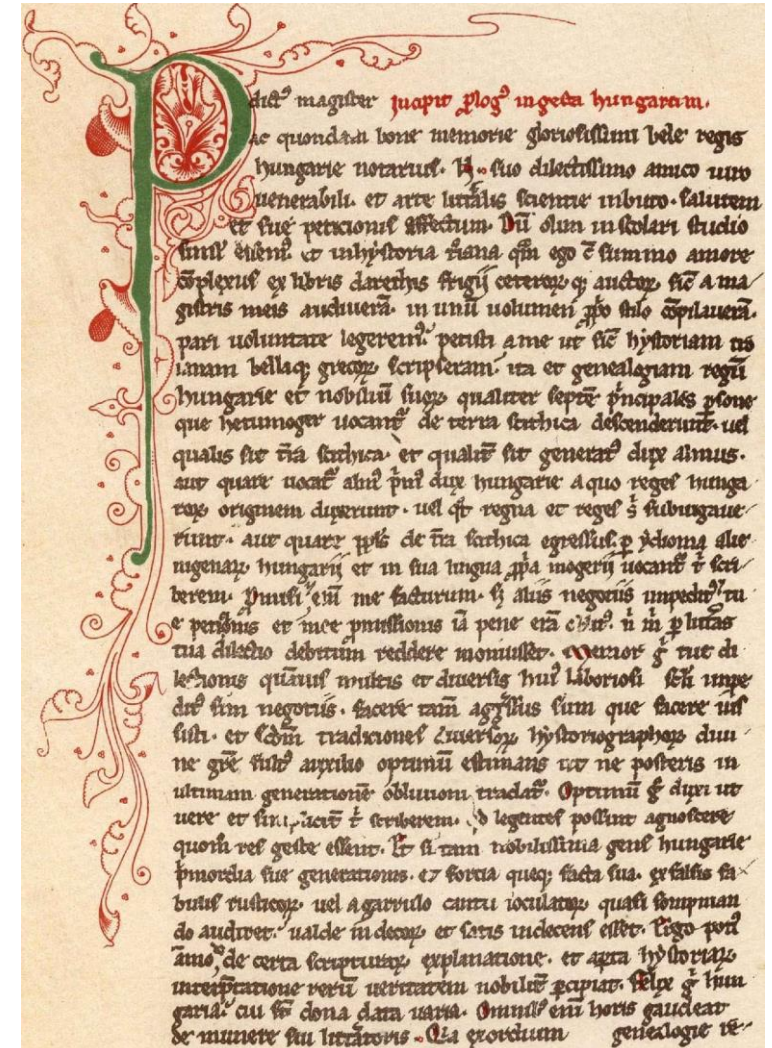 P dictꝰ magister Incipit ꝓlogꝰ in gesta hungarum.
ac quondam bone memorie gloriosissimi bele regis
hungarie notarius. N. suo dilectissimo amico uiro
uenerabili. et arte litt̄alis scientie inbuto. salutem
et sue peticionis effectum. Dū olim in scolari studio
simul essemꝰ. et in hystoria t̄iana q̄m ego cū summo amore
cōplexus ex libris darethis frigij ceteroꝝq; auctoꝝ sic̄ a ma
gistris meis audiuerā. in unū uolumen ꝓp̄o stilo cōpilauerā.
pari uoluntate legeremꝰ. petisti a me ut sic̄ hystoriam tro
ianam bellaq; grecoꝝ scripseram. ita et genealogiam regū
hungarie et nobiliū suoꝝ qualiter septē p̄ncipales ꝑsone
que hetumoger uocant̄ de terra scithica descenderunt. uel
qualis sit t̄ra scithica. et qualit̄ sit generatꝰ dux almus.
aut quare uocat̄ almꝰ p̄mꝰ dux hungarie a quo reges hunga
roꝝ originem duxerunt. uel q̄t regna et reges s̄ subiugaue
runt. aut quare ppl̄s de t̄ra scithica egressus. ꝑ ydioma alie
nigenaꝝ hungarij et in sua lingua ꝓp̄a mogerij uocant̄ t̄ scri
berem. Promisi eī me facturum. s; aliis negotiis impeditꝰ. tu
e petic̄onis et mee p̄missionis iā pene erā oblitꝰ. n̄ m̄ ꝑ litt̄as
tua dilectio debitum reddere monuisset. Memor ḡ tue di
lectionis quāuis multis et diuersis huiꝰ laboriosi sc̄li impe
ditꝰ sim negotiis. facere tam̄ aggressus sum que facere ius
sisti. et scdm̄ traditiones diuersoꝝ hystoriographoꝝ diui
ne grē fultꝰ auxilio optimū estimans ut ne posteris in
ultimam generationē obliuioni tradat̄. Optimū ḡ duxi ut
uere et simplicit̄ t̄ scriberem. qd legentes possint agnoscere
quom̄ res geste essent. Et si tam nobilissima gens hungarie
p̄mordia sue generationis. et fortia queq; facta sua. ex falsis fa
bulis rusticoꝝ. uel a garrulo cantu ioculatoꝝ quasi sompnian
do audiret. ualde indecoꝝ et satis indecens esset. Ergo potiꝰ
āmo de certa scripturaꝝ explanatione. et aperta hystoriaꝝ
interp̄tatione rerū ueritatem nobilit̄ ꝑcipiat. Felix ḡ hun
garia. cui s̄t dona data uaria. Omnibꝰ eī horis gaudeat
de munere sui litt̄atoris. Quia exordium genealogie re